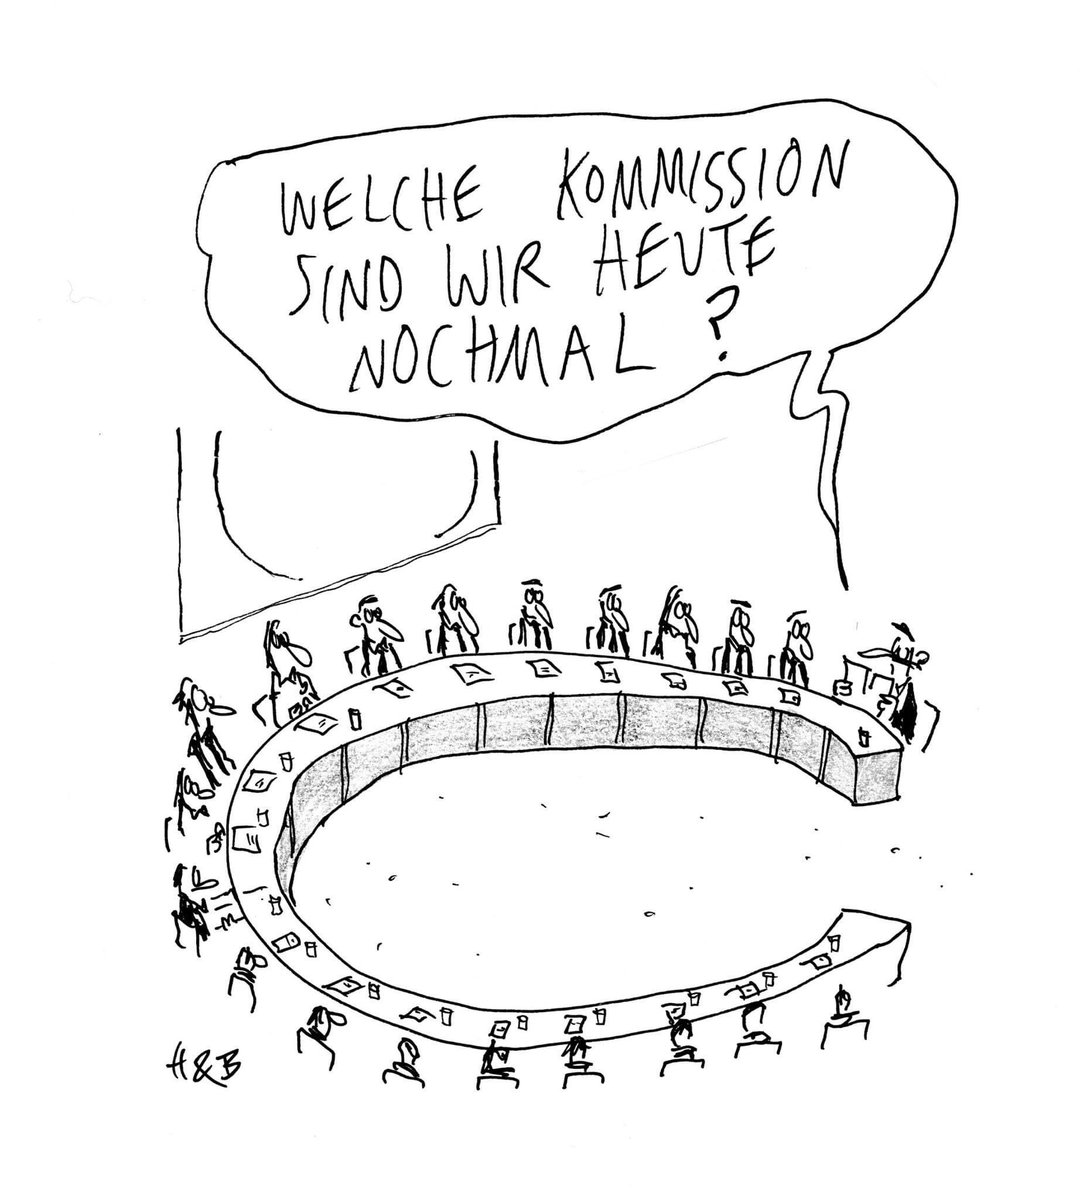 WELCHE KOMMISSION
SIND WIR HEUTE
NOCHMAL ?
H&B